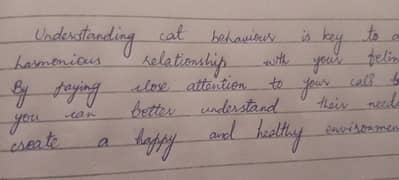 Understanding cat behaviour is key to a
harmonious relationship with your felin
By paying close attention to your cat's b
you can better understand their need
create a happy and healthy environmen